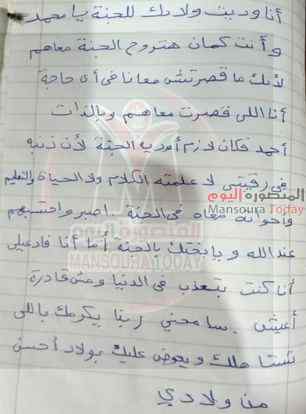 أنا وديت ولادك للجنة يا محمد
وأنت كمان هتروح الجنة معاهم
لأنك ما قصرتش معانا في أي حاجة
أنا اللي قصرت معاهم وبالذات
أحمد فكان لازم أوديه الجنة لأن ذنبه
في رقبتي لا علمته الكلام ولا الحياة والتعليم
وأخواته معاه في الجنة اصبر واحتسبهم
عند الله ويا بختك بالجنة أما أنا فادعيلي
أنا كنت بتعذب في الدنيا ومش قادرة
أعيش سامحني ربنا يكرمك باللي
تستاهلك ويعوض عليك بولاد أحسن
من ولادي
المنصورة اليوم
Mansoura Today
المنصورة اليوم
MANSOURA TODAY